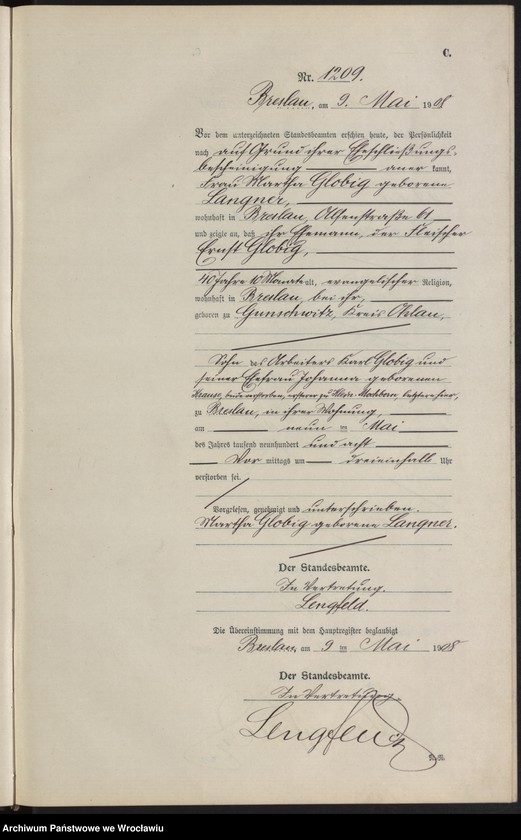 C.
Nr. 1209.
Breslau, am 9. Mai 1908
Vor dem unterzeichneten Standesbeamten erschien heute, der Persönlichkeit
nach auf Grund ihrer Eheschließungs-
bescheinigung anerkannt,
Frau Martha Globig geborene
Langner,
wohnhaft in Breslau, Alsenstraße 61
und zeigte an, daß ihr Ehemann, der Fleischer
Ernst Globig,
40 Jahre 10 Monate alt, evangelischer Religion,
wohnhaft in Breslau, bei ihr,
geboren zu Gunschwitz, Kreis Ohlau,
Sohn des Arbeiters Karl Globig und
seiner Ehefrau Johanna geborenen
Krause, beide verstorben, ersterer zu Klein Mochbern, letztere hier,
zu Breslau, in ihrer Wohnung,
am neun ten Mai
des Jahres tausend neunhundert und acht
Vor mittags um dreieinhalb Uhr
verstorben sei.
Vorgelesen, genehmigt und unterschrieben.
Martha Globig geborene Langner.
Der Standesbeamte.
In Vertretung.
Lengfeld.
Die Übereinstimmung mit dem Hauptregister beglaubigt
Breslau, am 9 ten Mai 1908
Der Standesbeamte.
In Vertretung.
Lengfeld
Archiwum Państwowe we Wrocławiu